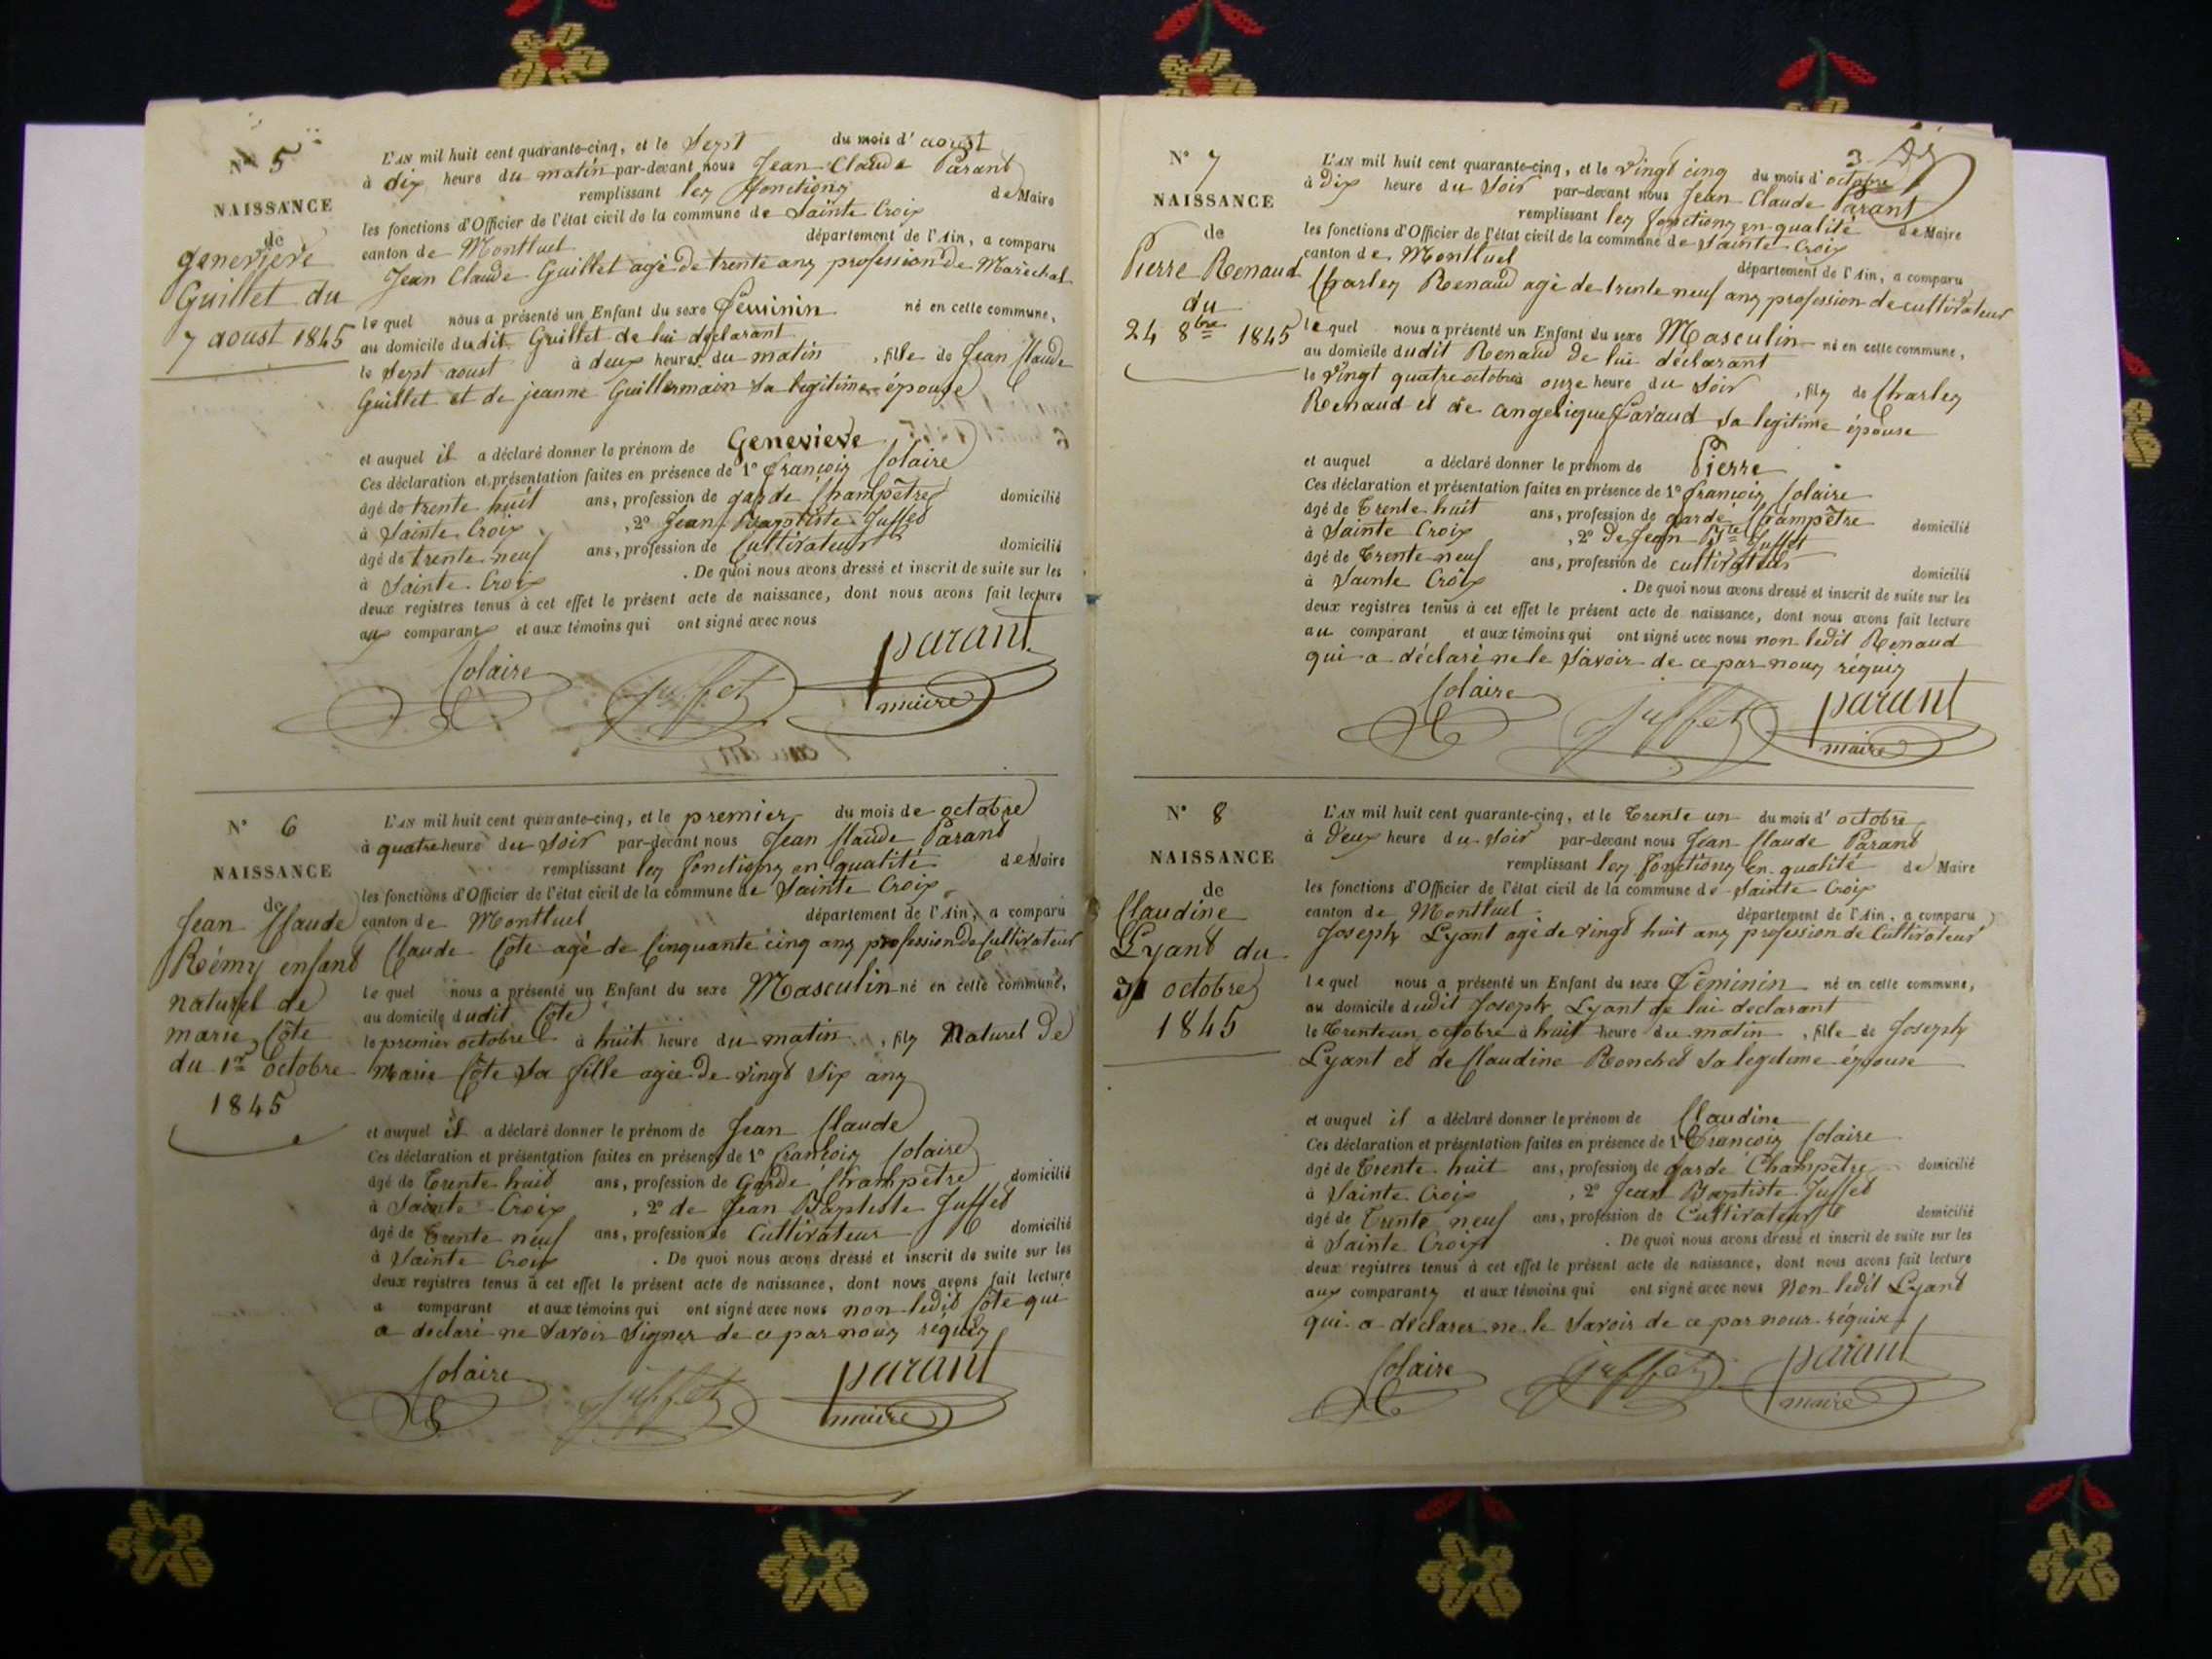 N° 5
NAISSANCE
de
genevieve
Guillet du
7 aoust 1845
L'AN mil huit cent quarante-cinq, et le Sept du mois d'aoust
à dix heure du matin par-devant nous Jean Claude Parant
remplissant les fonctions de Maire
les fonctions d'Officier de l'état civil de la commune de Sainte Croix
canton de Montluel département de l'Ain, a comparu
Jean Claude Guillet agé de trente ans profession de Maréchal
lequel nous a présenté un Enfant du sexe Féminin né en cette commune,
au domicile dudit Guillet de lui déclarant
le Sept aoust à deux heures du matin, fille de Jean Claude
Guillet et de jeanne Guillermain sa legitime épouse
et auquel il a déclaré donner le prénom de Genevieve
Ces déclaration et présentation faites en présence de 1° françois Colaire
âgé de trente huit ans, profession de garde Champêtre domicilié
à Sainte Croix, 2° Jean Baptiste Juffet
âgé de trente neuf ans, profession de Cultivateur domicilié
à Sainte Croix. De quoi nous avons dressé et inscrit de suite sur les
deux registres tenus à cet effet le présent acte de naissance, dont nous avons fait lecture
aux comparants et aux témoins qui ont signé avec nous
Colaire Juffet parant
maire
N° 6
NAISSANCE
de
Jean Claude
Rémy enfant
naturel de
marie Côte
du 1er octobre
1845
L'AN mil huit cent quarante-cinq, et le premier du mois de octobre
à quatre heure du Soir par-devant nous Jean Claude Parant
remplissant les fonctions en qualité de Maire
les fonctions d'Officier de l'état civil de la commune de Sainte Croix
canton de Montluel département de l'Ain, a comparu
Claude Côte agé de Cinquante cinq ans profession de Cultivateur
lequel nous a présenté un Enfant du sexe Masculin né en cette commune,
au domicile dudit Côte
le premier octobre à huit heure du matin, fils Naturel de
Marie Côte Sa fille agée de vingt Six ans
et auquel il a déclaré donner le prénom de Jean Claude
Ces déclaration et présentation faites en présence de 1° françois Colaire
âgé de trente huit ans, profession de Garde Champêtre domicilié
à Sainte Croix, 2° de Jean Baptiste Juffet
âgé de trente neuf ans, profession de Cultivateur domicilié
à Sainte Croix. De quoi nous avons dressé et inscrit de suite sur les
deux registres tenus à cet effet le présent acte de naissance, dont nous avons fait lecture
a comparant et aux témoins qui ont signé avec nous non ledit Côte qui
a declaré ne Savoir Signer de ce par nous réquis
Colaire Juffet parant
maire
3
N° 7
NAISSANCE
de
Pierre Renaud
du
24 8bre 1845
L'AN mil huit cent quarante-cinq, et le vingt cinq du mois d'octobre
à Dix heure du Soir par-devant nous Jean Claude Parant
remplissant les fonctions en qualité de Maire
les fonctions d'Officier de l'état civil de la commune de Sainte Croix
canton de Montluel département de l'Ain, a comparu
Charles Renaud agé de trente neuf ans profession de cultivateur
lequel nous a présenté un Enfant du sexe Masculin né en cette commune,
au domicile dudit Renaud de lui déclarant
le vingt quatre octobre à onze heure du Soir, fils de Charles
Renaud et de angelique Savaud Sa legitime épouse
et auquel a déclaré donner le prénom de Pierre
Ces déclaration et présentation faites en présence de 1° françois Colaire
âgé de trente huit ans, profession de garde Champêtre domicilié
à Sainte Croix, 2° de Jean Bte Juffet
âgé de trente neuf ans, profession de cultivateur domicilié
à Sainte Croix. De quoi nous avons dressé et inscrit de suite sur les
deux registres tenus à cet effet le présent acte de naissance, dont nous avons fait lecture
au comparant et aux témoins qui ont signé avec nous non ledit Renaud
qui a déclaré ne le Savoir de ce par nous réquis
Colaire Juffet parant
maire
N° 8
NAISSANCE
de
Claudine
Lyant du
31 octobre
1845
L'AN mil huit cent quarante-cinq, et le trente un du mois d'octobre
à Deux heure du Soir par-devant nous Jean Claude Parant
remplissant les fonctions en qualité de Maire
les fonctions d'Officier de l'état civil de la commune de Sainte Croix
canton de Montluel département de l'Ain, a comparu
Joseph Lyant agé de vingt huit ans profession de Cultivateur
lequel nous a présenté un Enfant du sexe Féminin né en cette commune,
au domicile dudit Joseph Lyant de lui declarant
le trente un octobre à huit heure du matin, fille de Joseph
Lyant et de Claudine Ronchet Sa legitime épouse
et auquel il a déclaré donner le prénom de Claudine
Ces déclaration et présentation faites en présence de 1° François Colaire
âgé de trente huit ans, profession de garde Champêtre domicilié
à Sainte Croix, 2° Jean Baptiste Juffet
âgé de trente neuf ans, profession de Cultivateur domicilié
à Sainte Croix. De quoi nous avons dressé et inscrit de suite sur les
deux registres tenus à cet effet le présent acte de naissance, dont nous avons fait lecture
aux comparants et aux témoins qui ont signé avec nous Non ledit Lyant
qui a déclarer ne le Savoir de ce par nous réquis
Colaire Juffet parant
maire